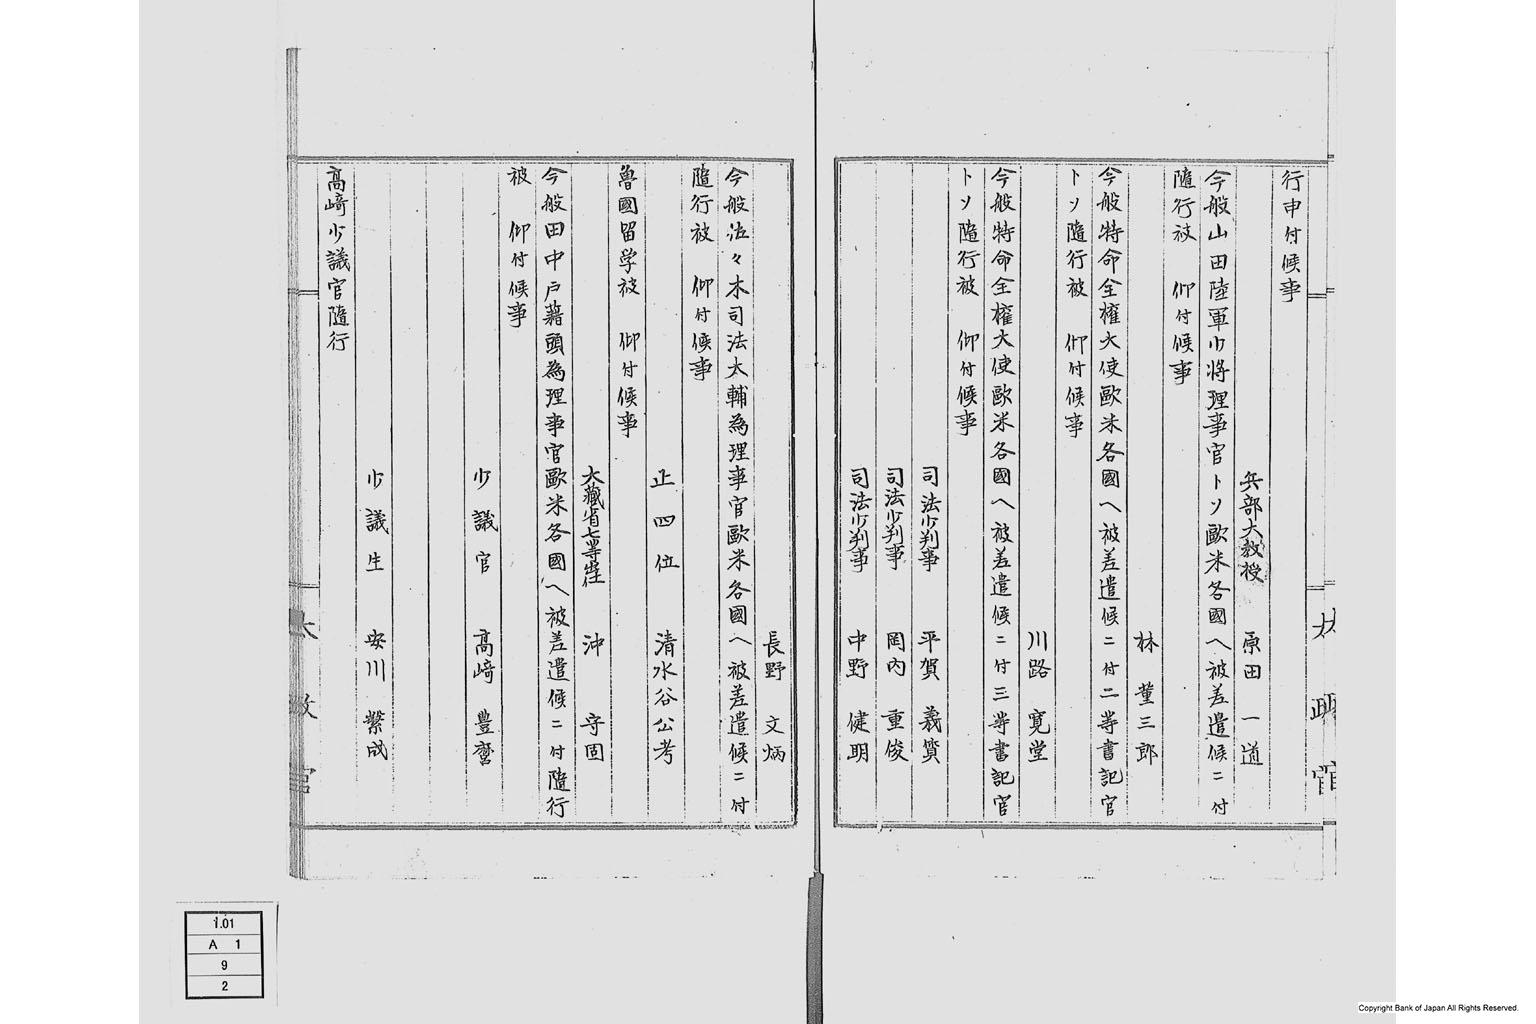 行申付候事
兵部大教授 原田一道
今般山田陸軍少将理事官トソ歐米各國ヘ被差遣候ニ付
隨行被 仰付候事
林董三郎
今般特命全権大使歐米各國ヘ被差遣候ニ付二等書記官
トソ隨行被 仰付候事
川路寛堂
今般特命全権大使歐米各國ヘ被差遣候ニ付三等書記官
トソ隨行被 仰付候事
司法少判事 平賀義質
司法少判事 岡内重俊
司法少判事 中野健明
長野文炳
今般佐々木司法大輔為理事官歐米各國ヘ被差遣候ニ付
隨行被 仰付候事
正四位 清水谷公考
魯國留学被 仰付候事
大藏省七等出仕 沖守固
今般田中戸籍頭為理事官歐米各國ヘ被差遣候ニ付隨行
被 仰付候事
少議官 高﨑豊麿
少議生 安川繁成
高﨑少議官隨行
太政官
1.01
A 1
9
2
Copyright Bank of Japan All Rights Reserved.